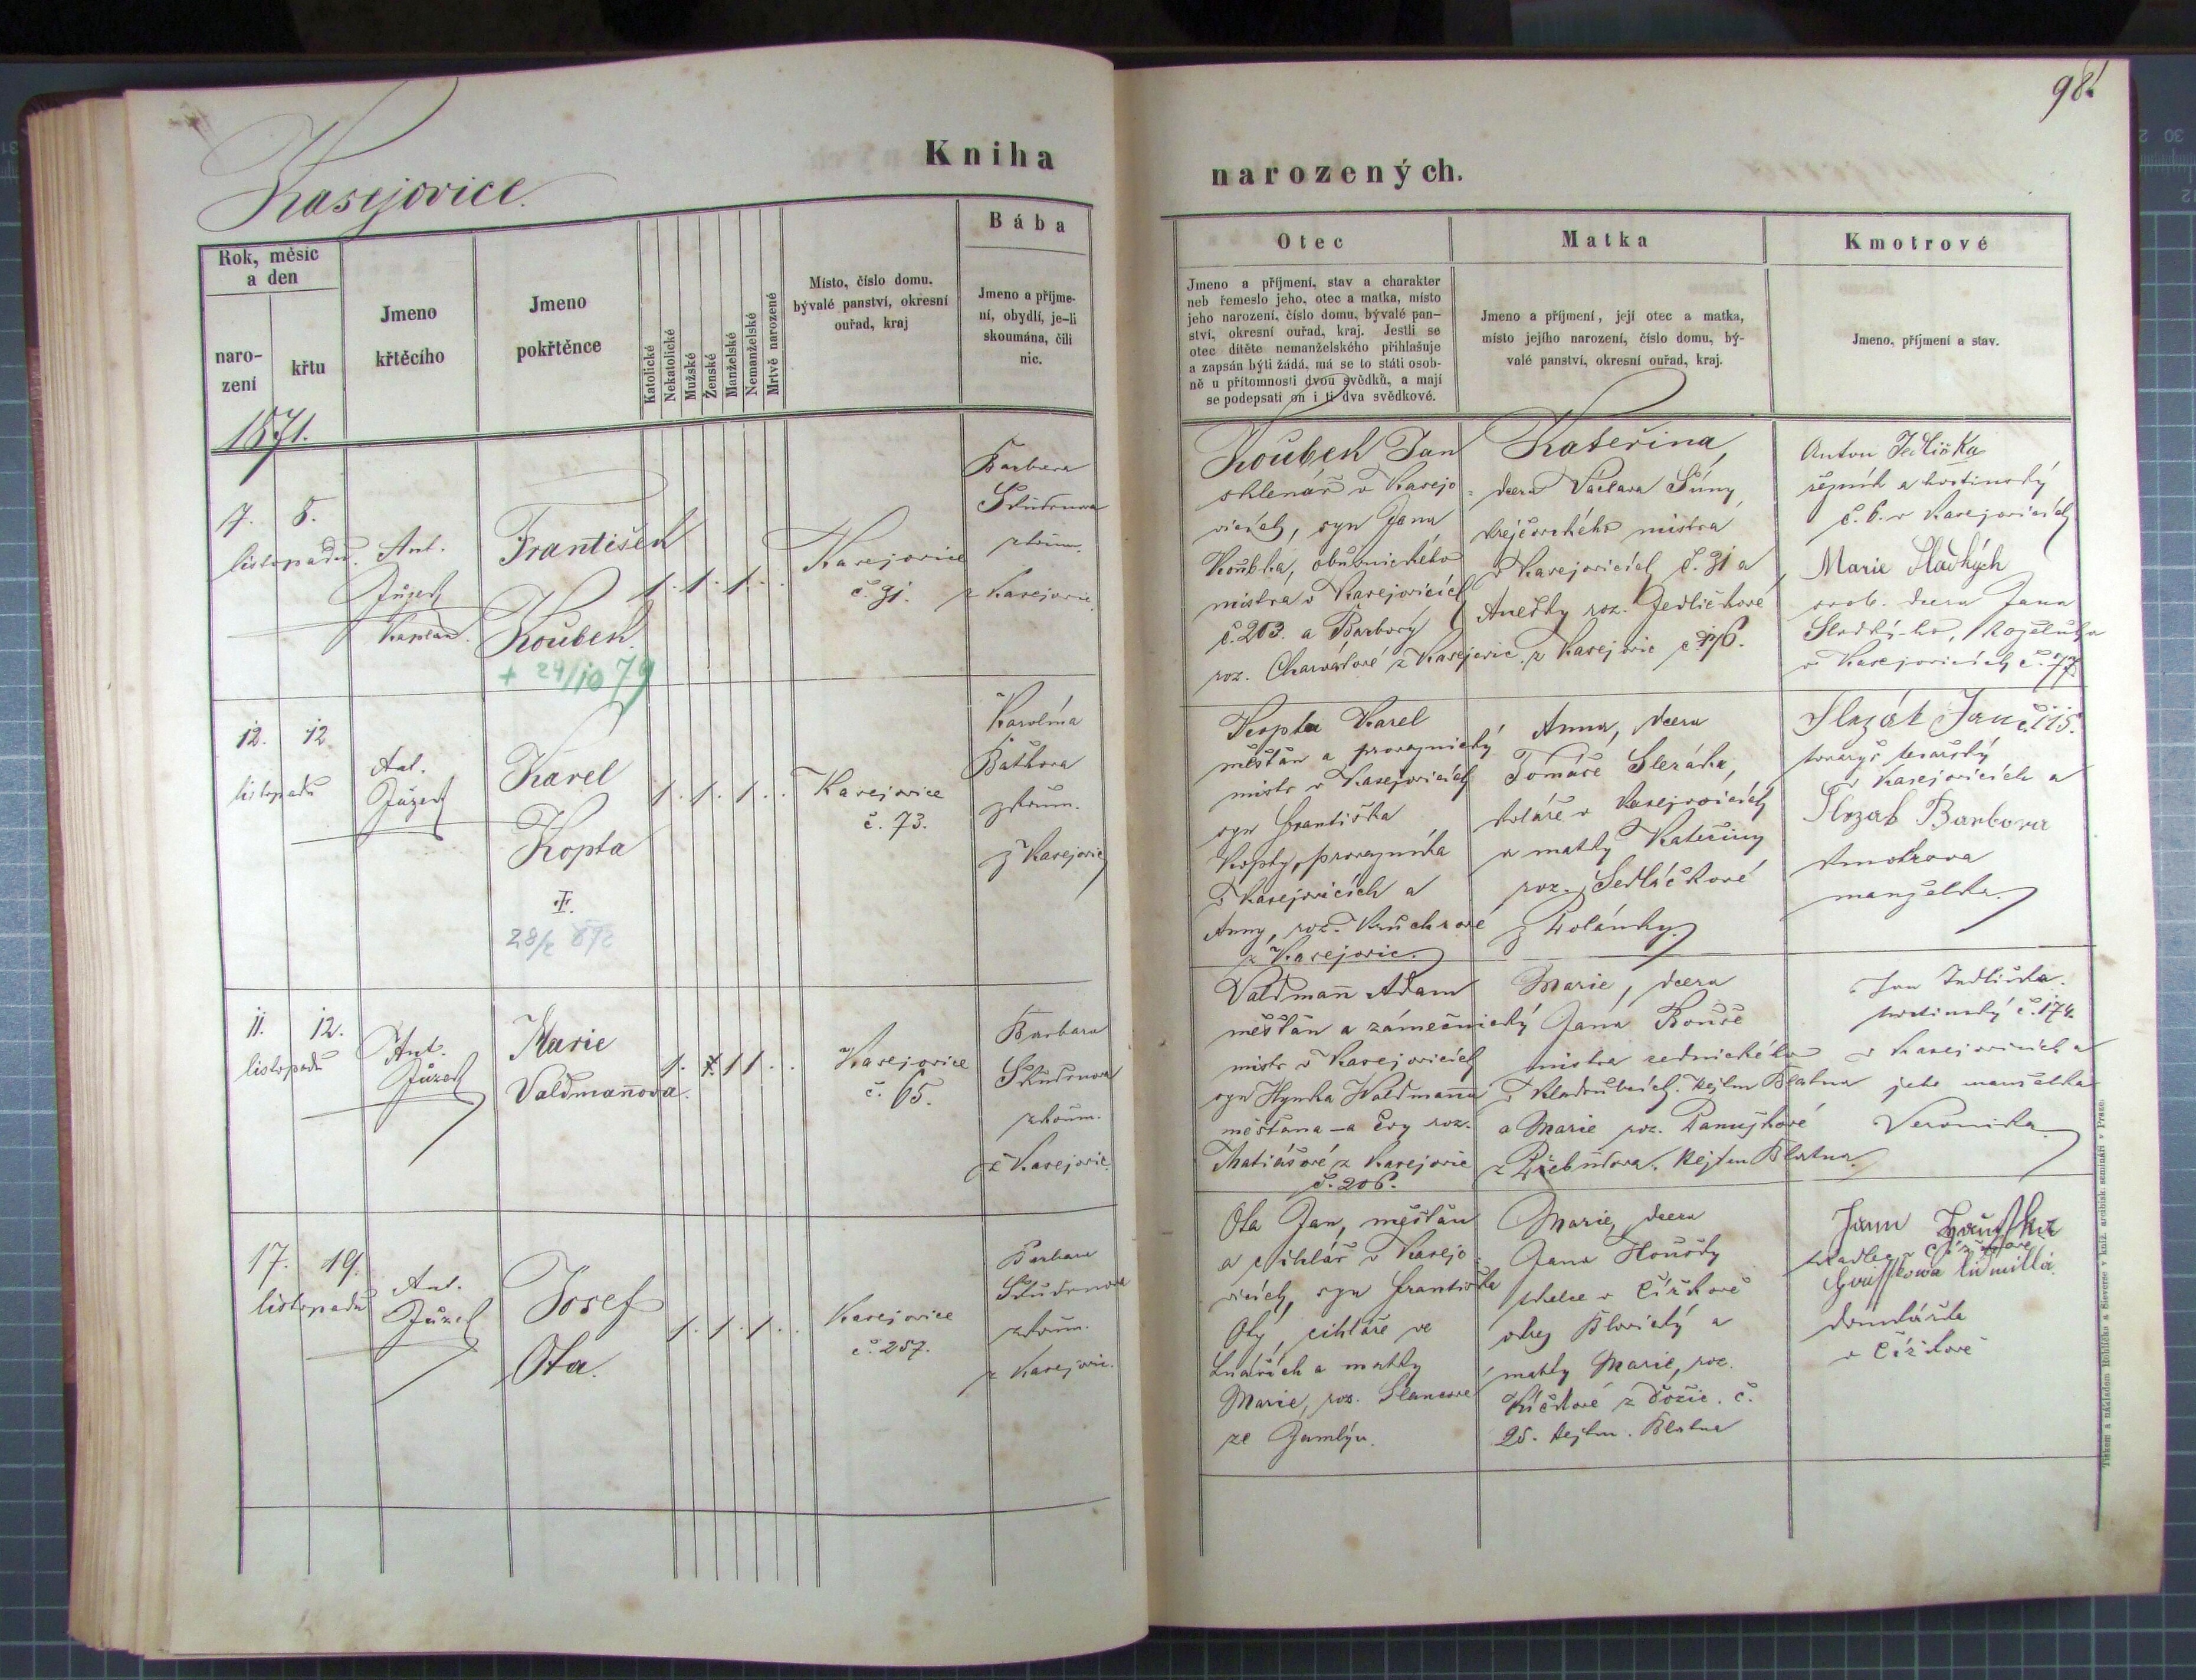 98.
Kniha
narozených.
Kasejovice.
Rok, měsíc
a den
naro-
zení
křtu
Jmeno
křtěcího
Jmeno
pokřtěnce
Katolické
Nekatolické
Mužské
Ženské
Manželské
Nemanželské
Mrtvě narozené
Místo, číslo domu,
bývalé panství, okresní
ouřad, kraj
Bába
Jmeno a příjme-
ní, obydlí, je-li
skoumána, čili
nic.
Otec
Jmeno a příjmení, stav a charakter
neb řemeslo jeho, otec a matka, místo
jeho narození, číslo domu, bývalé pan-
ství, okresní ouřad, kraj. Jestli se
otec dítěte nemanželského přihlašuje
a zapsán býti žádá, má se to státi osob-
ně u přítomnosti dvou svědků, a mají
se podepsati on i ti dva svědkové.
Matka
Jmeno a příjmení, její otec a matka,
místo jejího narození, číslo domu, bý-
valé panství, okresní ouřad, kraj.
Kmotrové
Jmeno, příjmení a stav.
1871.
7. 8.
listopadu.
Ant.
Jůzek
Kaplan.
František
Koubek.
+ 24/10 79
1. 1. 1.
Kasejovice
č. 31.
Barbora
zkoum.
z Kasejovic.
Koubek Jan
sklenář v Kasejo-
vicích, syn Jana
Koubka, obuvnického
mistra v Kasejovicích
č. 203. a Barbory
roz. Charvátové z Kasejovic.
Kateřina,
dcera Václava
krejčovského mistra
v Kasejovicích č. 31 a
Anežky roz. Jedličkové
z Kasejovic
Anton Jedlička
řezník a hostinský
č. 6. v Kasejovicích
Marie Sladkých
svob. dcera Jana
v Kasejovicích č. 77.
12. 12
listopadu
Ant.
Jůzek
Karel
Kopta
1. 1. 1.
Kasejovice
č. 73.
Karolína
zkoum.
z Kasejovic
Kopta Karel
měšťan a provaznický
mistr v Kasejovicích
syn Františka
Kopty, provazníka
v Kasejovicích a
Anny, roz.
z Kasejovic.
Anna, dcera
Tomáše Slezáka,
koláře v Kasejovicích
a matky Kateřiny
roz. Sedláčkové
z Polánky.
Jan č. 115.
v Kasejovicích a
Barbora
kmotrova
manželka.
11. 12.
listopadu
Ant.
Jůzek
Marie
Valdmanova.
1. 1. 1
Kasejovice
č. 65.
Barbora
zkoum.
z Kasejovic.
Valdmann Adam
měšťan a zámečnický
mistr v Kasejovicích
syn Hynka Waldmanna
měšťana a Evy roz.
Matiášové z Kasejovic
č. 206.
Marie, dcera
Jana
mistra
v Kladrubcích. Hejtm Blatna
a Marie roz.
z Hejtm Blatna.
Jan Jedlička.
hostinský č. 174.
v Kasejovicích a
jeho manželka
Veronika.
17. 19.
listopadu
Ant.
Jůzek
Josef
Ota.
1. 1. 1.
Kasejovice
č. 257.
Barbora
zkoum.
z Kasejovic.
Ota Jan, měšťan
a cihlář v Kasejo-
vicích, syn Františka
Oty, cihláře ve
Lnářích a matky
Marie, roz.
Marie, dcera
Jana Houšky
v Čížkově
okres Blovický a
matky Marie, roz.
z Dožic. č.
25. hejtm. Blatna
Jann
domkářka
v Čížkově
Tiskem a nákladem Rohlíčka a Sieverse v kníž. arcibisk. semináři v Praze.